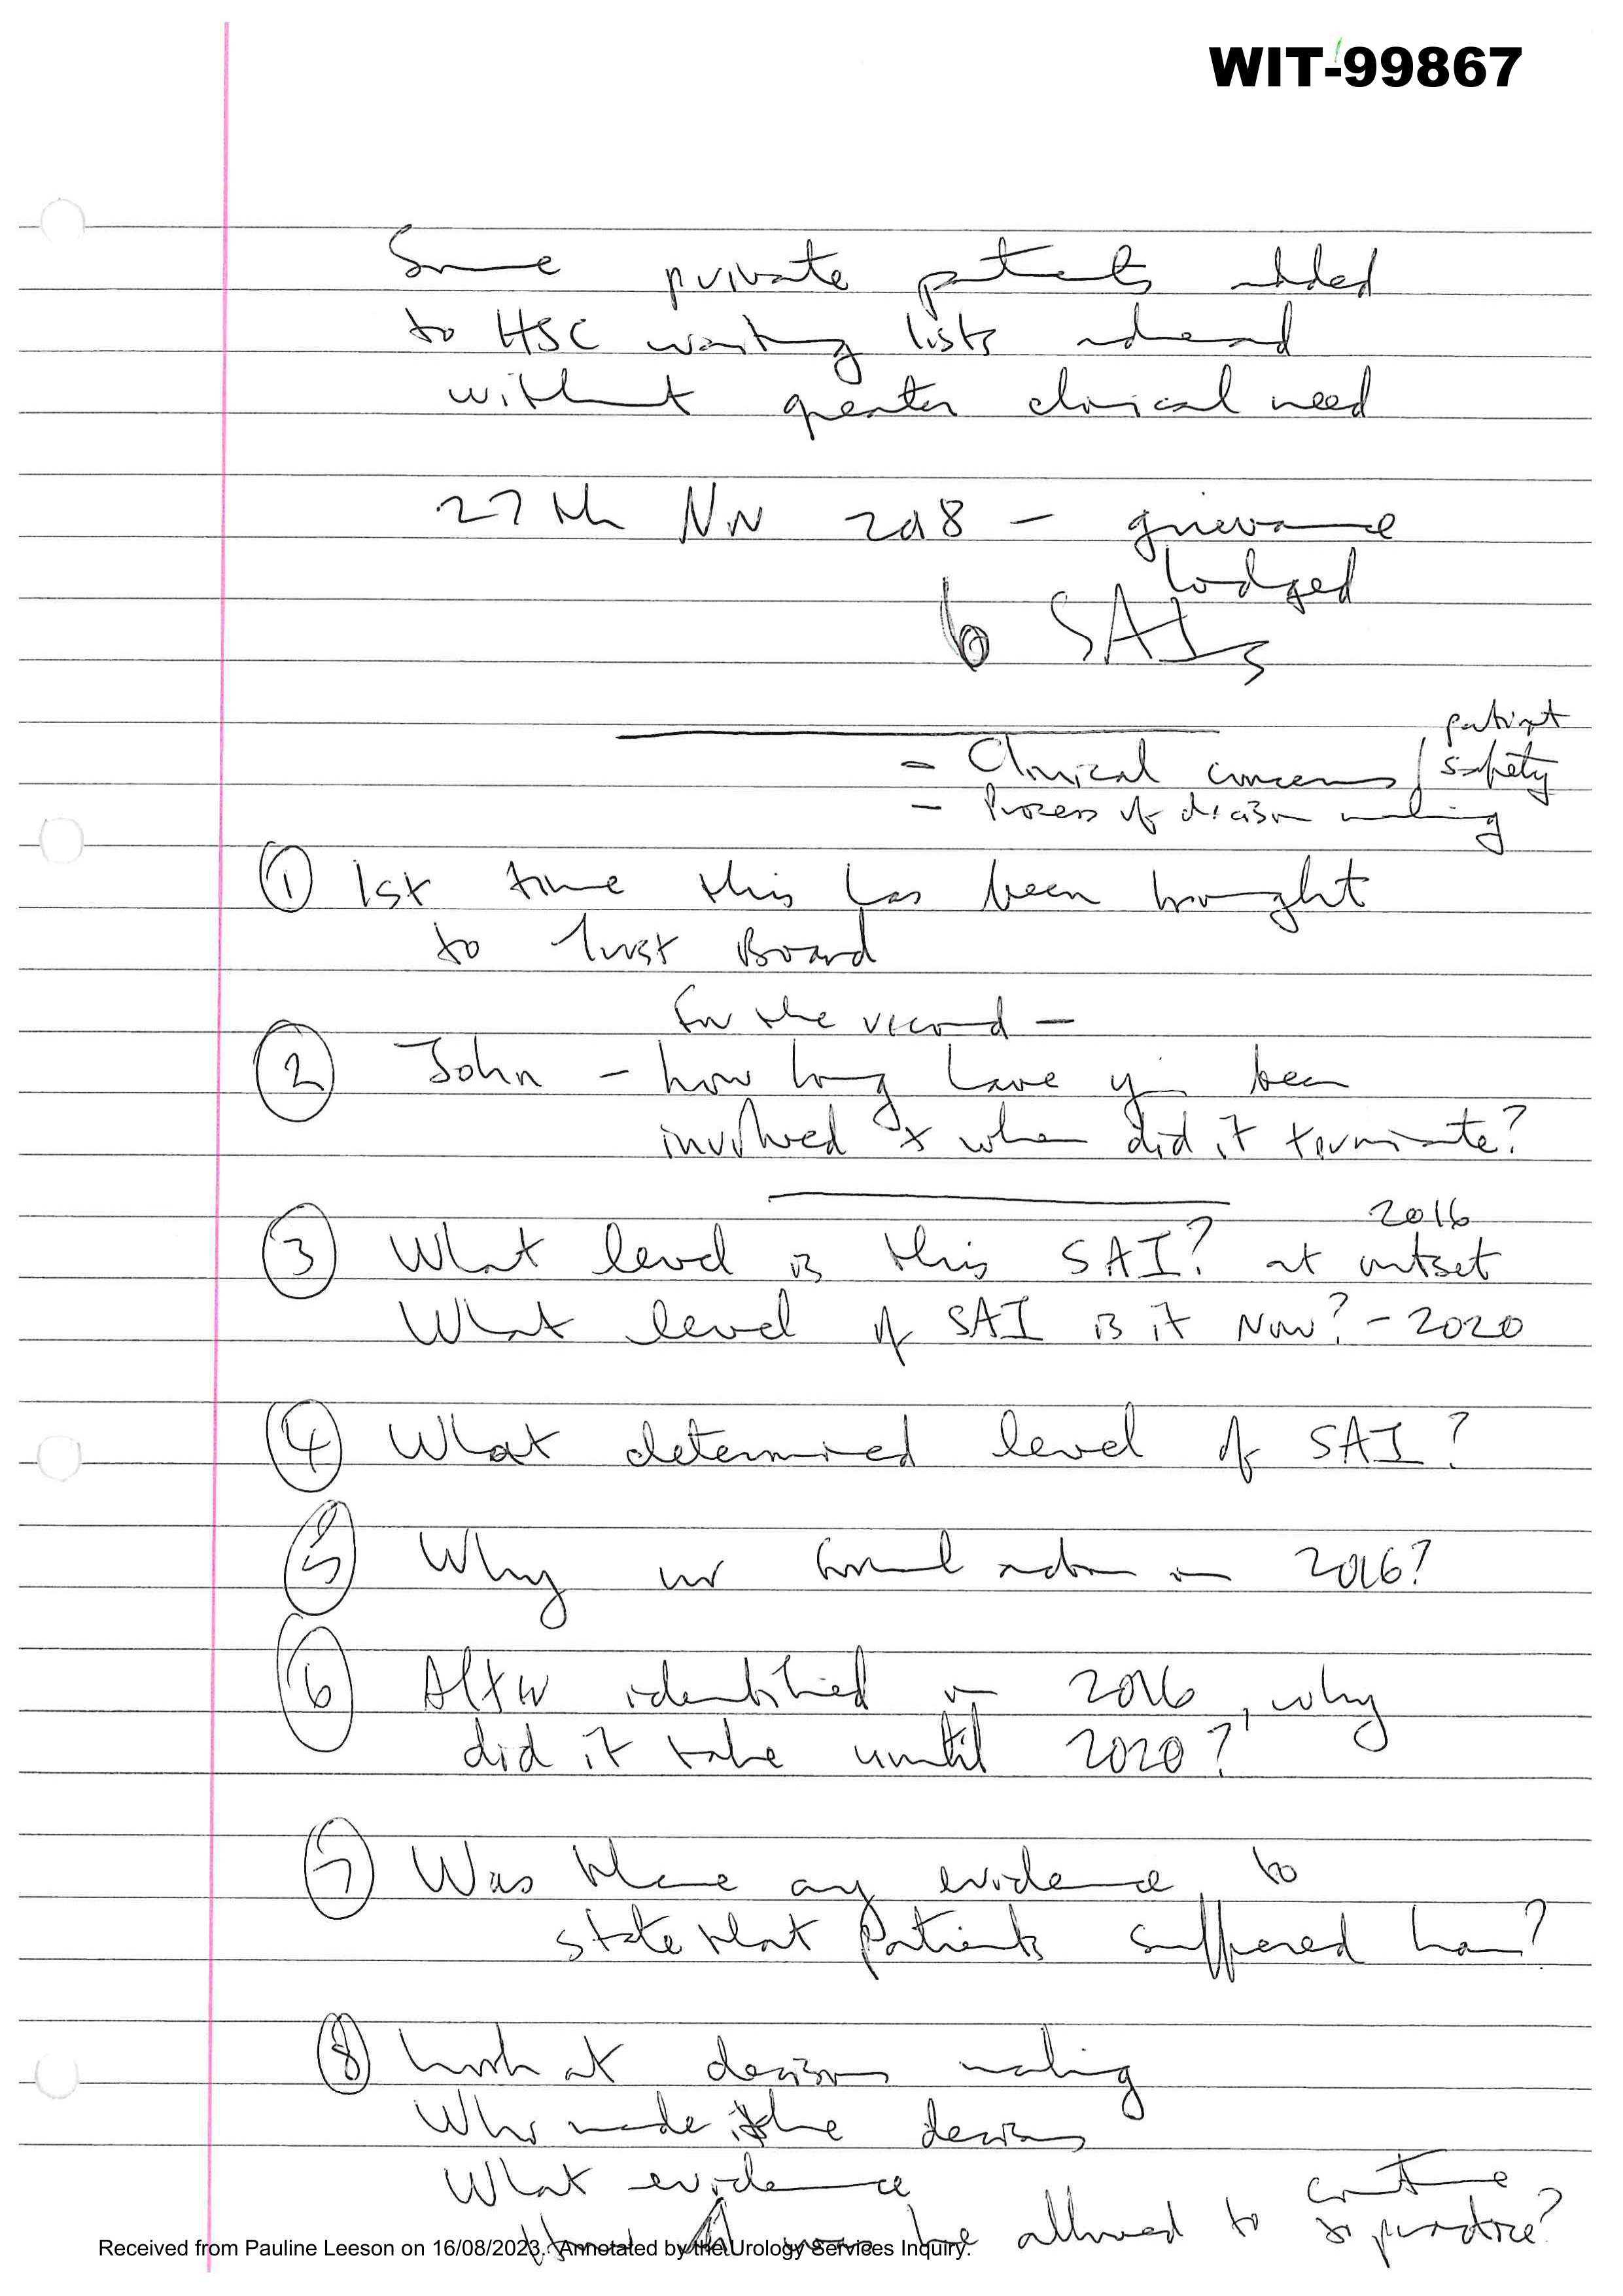 WIT-99867
Some private patients added
to HSC waiting lists ahead
without greater clinical need
27th Nov 2018 - grievance
lodged
6 SAIs
patient
- Clinical concerns / safety
- Process of decision making
① 1st time this has been brought
to Trust Board
for the record -
② John - how long have you been
involved + when did it terminate?
2016
③ What level is this SAI? at outset
What level of SAI is it Now? - 2020
④ What determined level of SAI?
⑤ Why no formal action in 2016?
⑥ identified in 2016, why
did it take until 2020?
⑦ Was there any evidence to
state that patients suffered harm?
⑧ Look at decision making
Who made the decisions
What evidence
continue
was he allowed to practice?
Received from Pauline Leeson on 16/08/2023. Annotated by the Urology Services Inquiry.